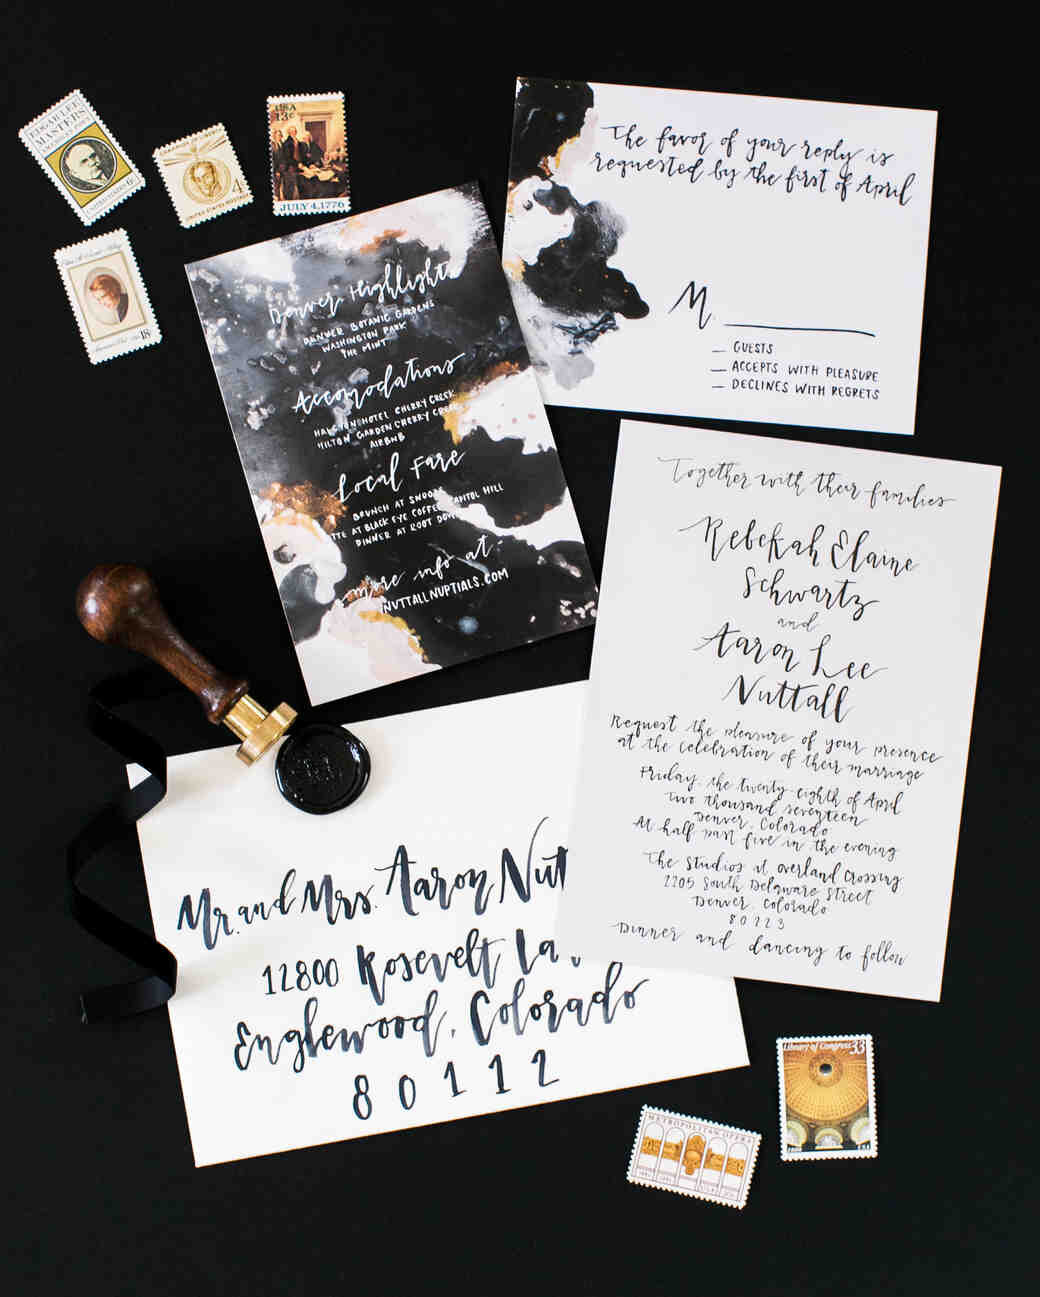 EDGAR LEE
MASTERS
AMERICAN POET
UNITED STATES 6c
4
UNITED STATES POSTAGE
USA
13c
JULY 4, 1776
18c
The favor of your reply is
requested by the first of April
M
GUESTS
ACCEPTS WITH PLEASURE
DECLINES WITH REGRETS
Denver Highlights
DENVER BOTANIC GARDENS
WASHINGTON PARK
THE MINT
Accomodations
HOTEL CHERRY CREEK
HILTON GARDEN CHERRY CREEK
AIRBNB
Local Fare
BRUNCH AT SNOOZE
TTE AT BLACK EYE COFFEE CAPITOL HILL
DINNER AT ROOT DOWN
more info at
NUTTALLNUPTIALS.COM
Together with their families
Rebekah Elaine
Schwartz
and
Aaron Lee
Nuttall
Request the pleasure of your presence
at the celebration of their marriage
Friday, the twenty-eighth of April
two thousand seventeen
Denver, Colorado
At half past five in the evening
The Studios at Overland Crossing
2205 South Delaware Street
Denver, Colorado
80223
Dinner and dancing to follow
Mr. and Mrs. Aaron Nut
12800 Rosevelt La
Englewood, Colorado
80112
Library of Congress 33
METROPOLITAN OPERA